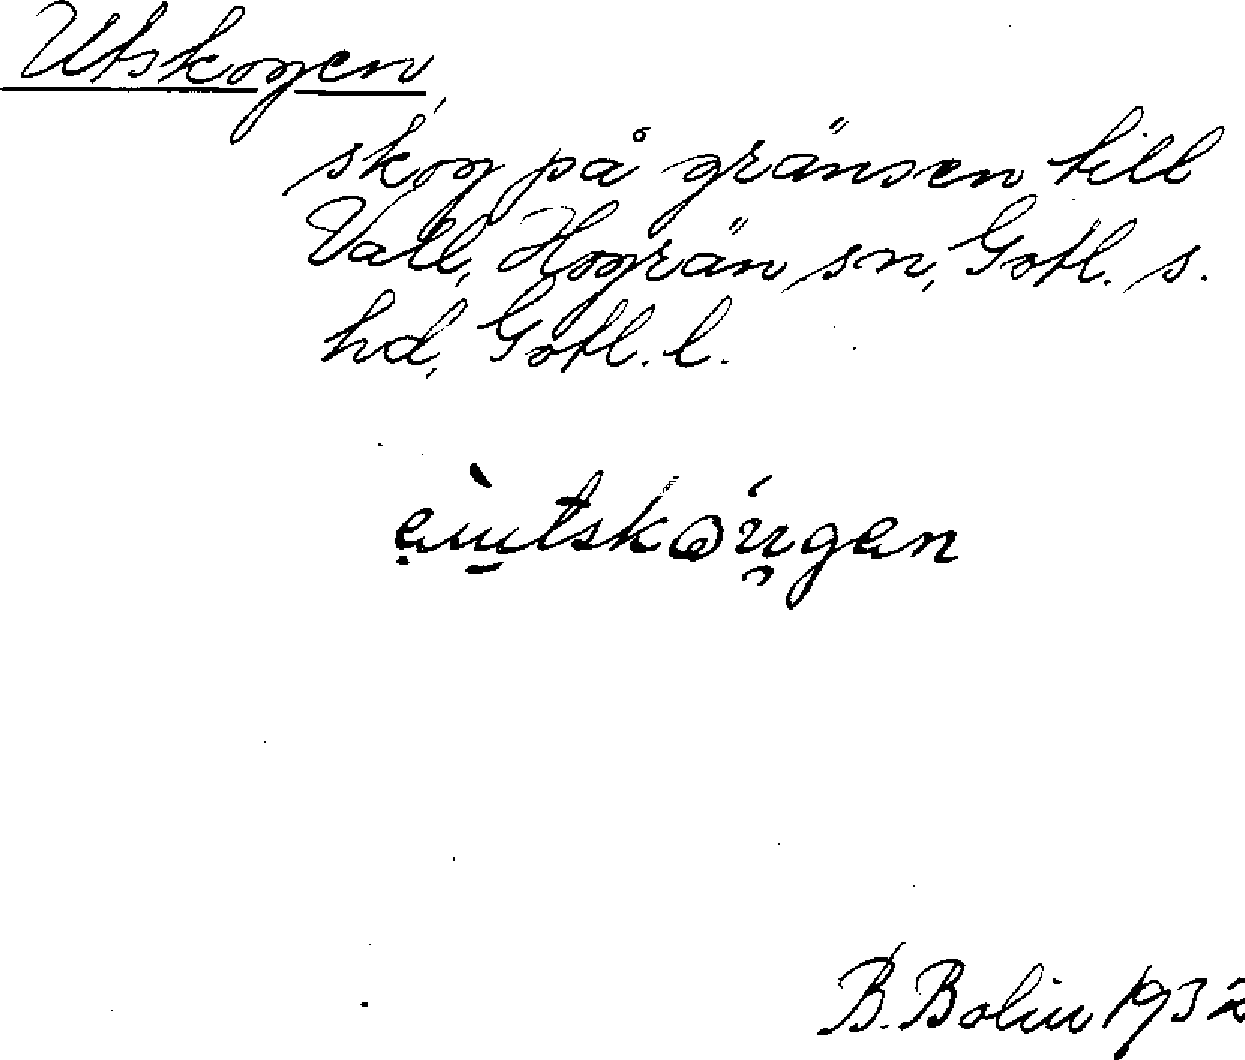 Utskogen
skog på gränsen till
Vall, Hogrän sn, Gotl. s.
hd, Gotl. l.
B. Bolin 1932